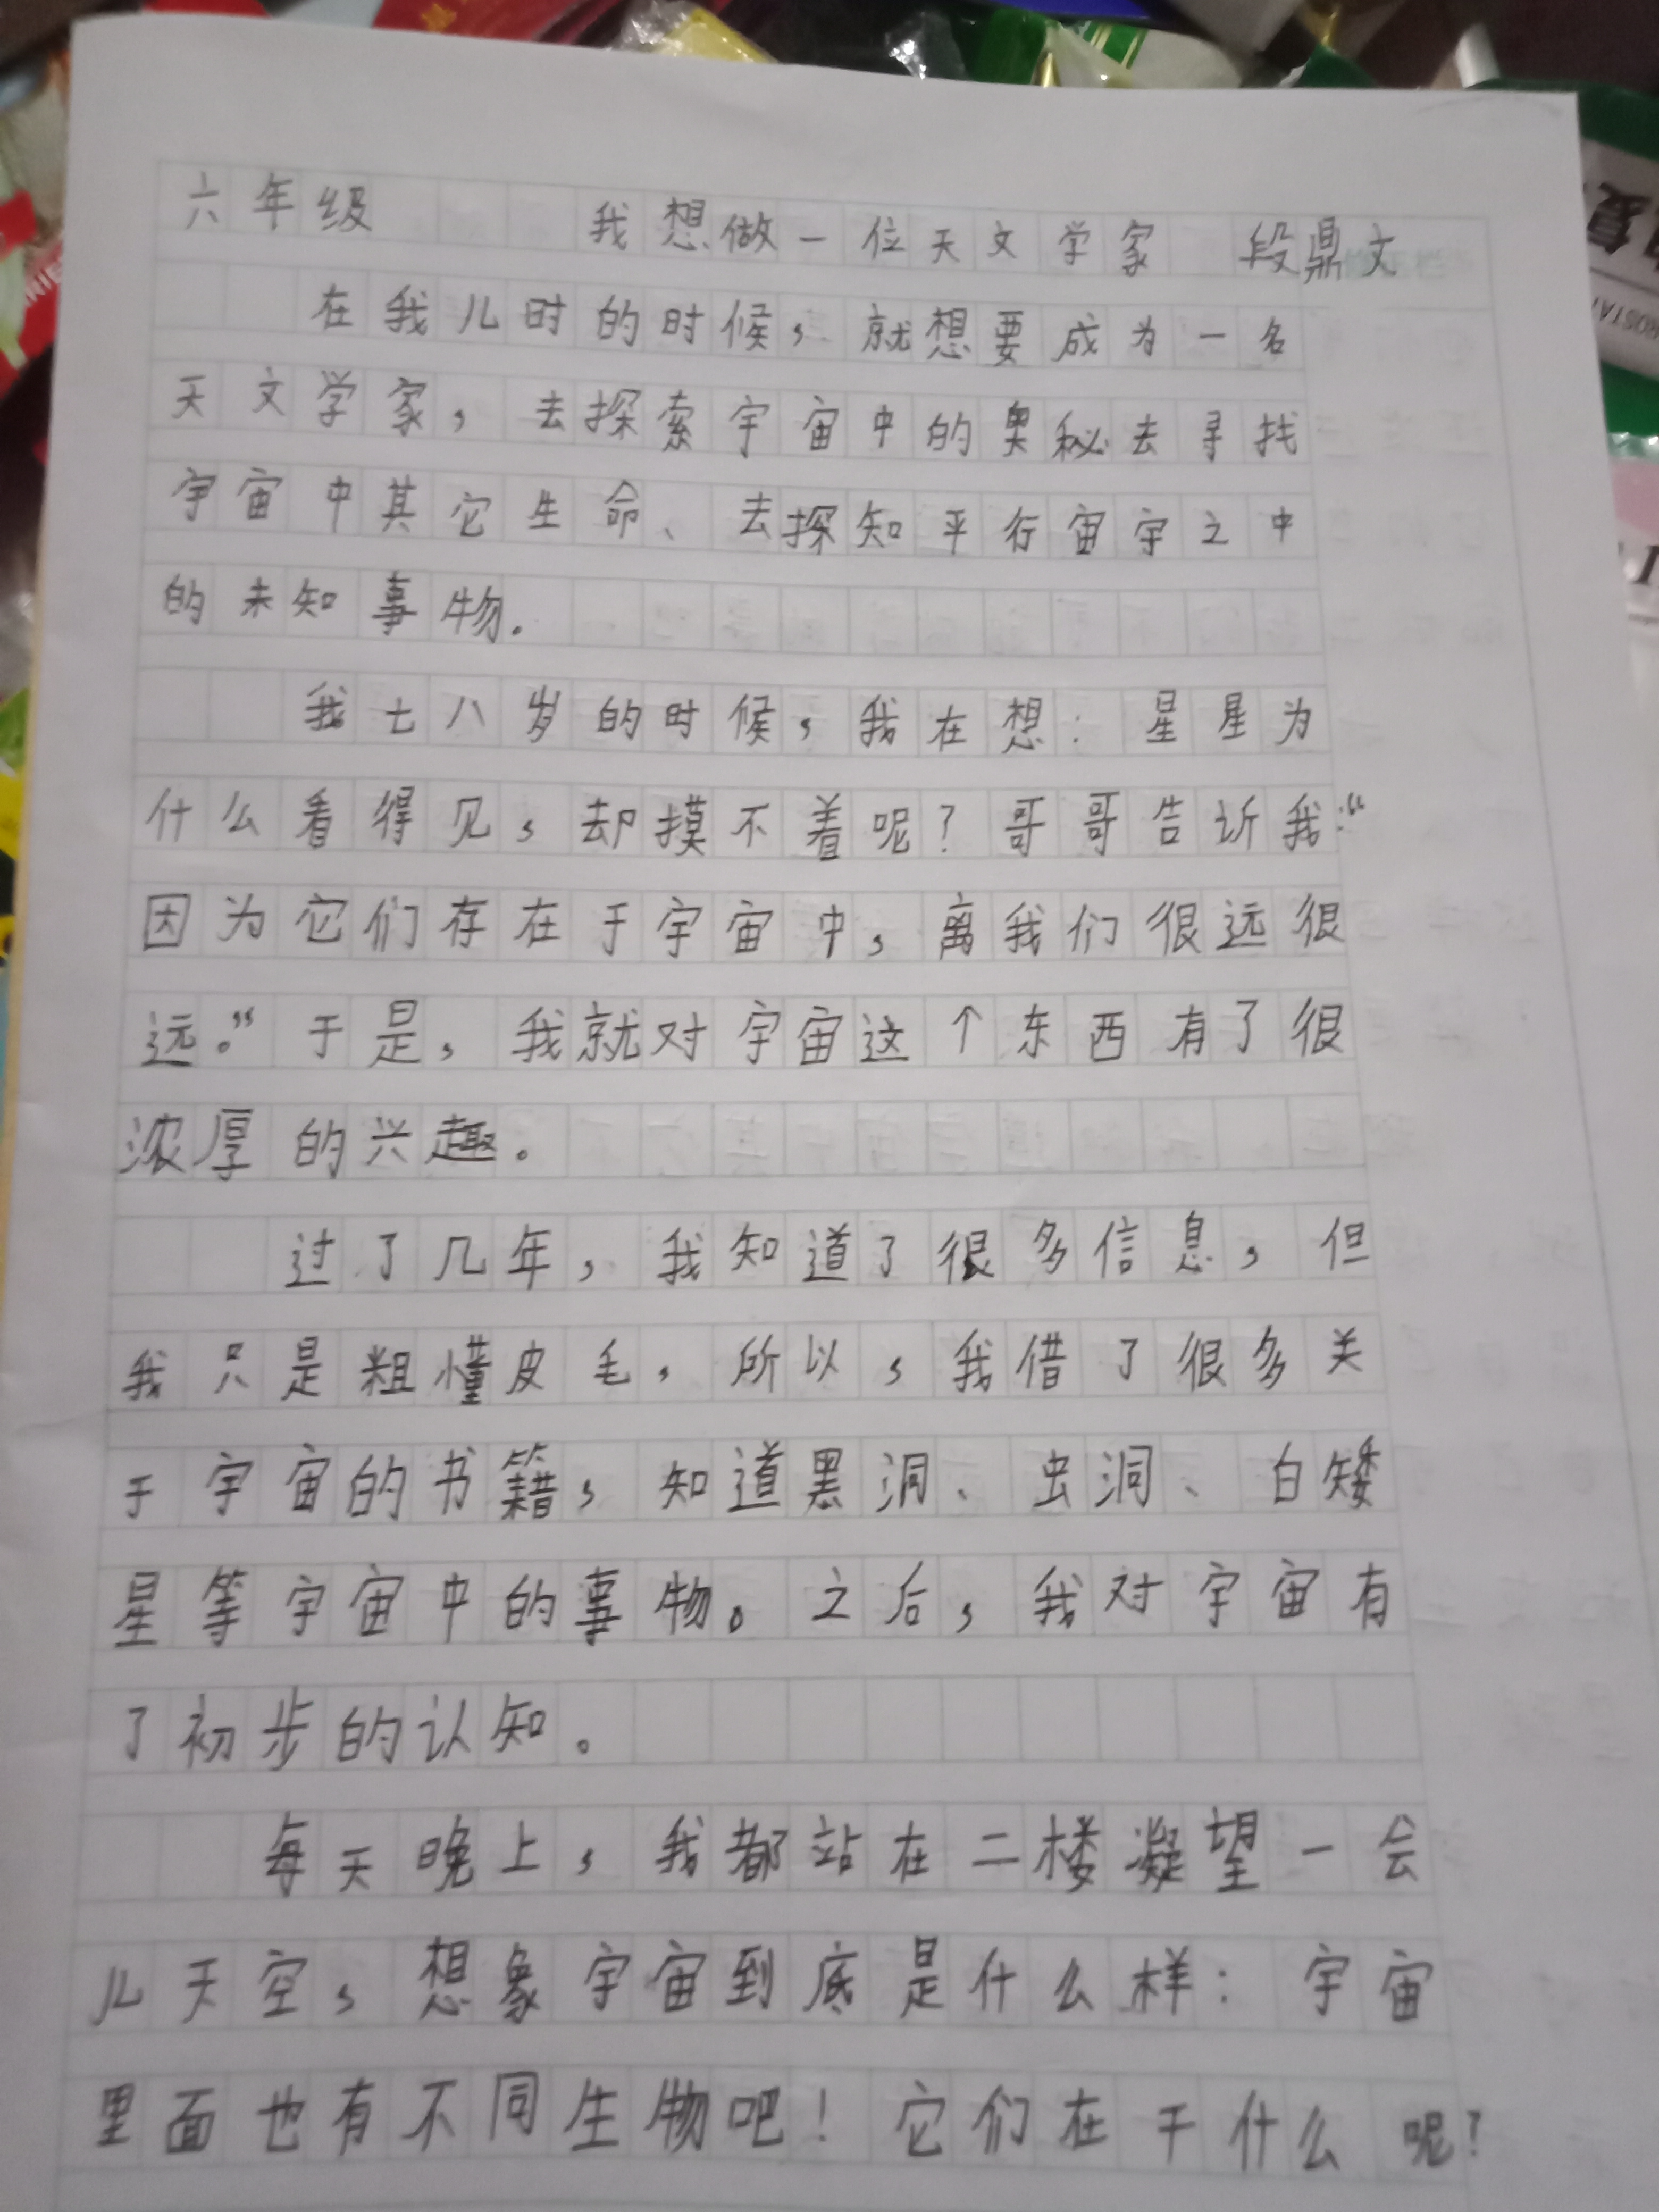 六年级 我想做一位天文学家 段鼎文
在我儿时的时候，就想要成为一名
天文学家，去探索宇宙中的奥秘去寻找
宇宙中其它生命、去探知平行宙宇之中
的未知事物。
我七八岁的时候，我在想：星星为
什么看得见，却摸不着呢？哥哥告诉我：“
因为它们存在于宇宙中，离我们很远很
远。”于是，我就对宇宙这个东西有了很
浓厚的兴趣。
过了几年，我知道了很多信息，但
我只是粗懂皮毛，所以，我借了很多关
于宇宙的书籍，知道黑洞、虫洞、白矮
星等宇宙中的事物。之后，我对宇宙有
了初步的认知。
每天晚上，我都站在二楼凝望一会
儿天空，想象宇宙到底是什么样：宇宙
里面也有不同生物吧！它们在干什么呢？